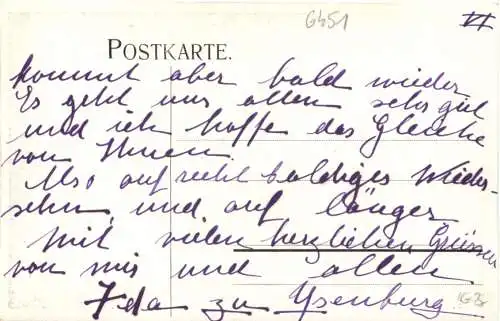 6451
VI
POSTKARTE.
kommt aber bald wieder
Es geht uns allen sehr gut
und ich hoffe das Gleiche
von Ihnen.
Also auf recht baldiges Wieder-
sehn und auf länger
Mit vielen herzlichen Grüssen
von mir und allen
Ida zu Ysenburg.